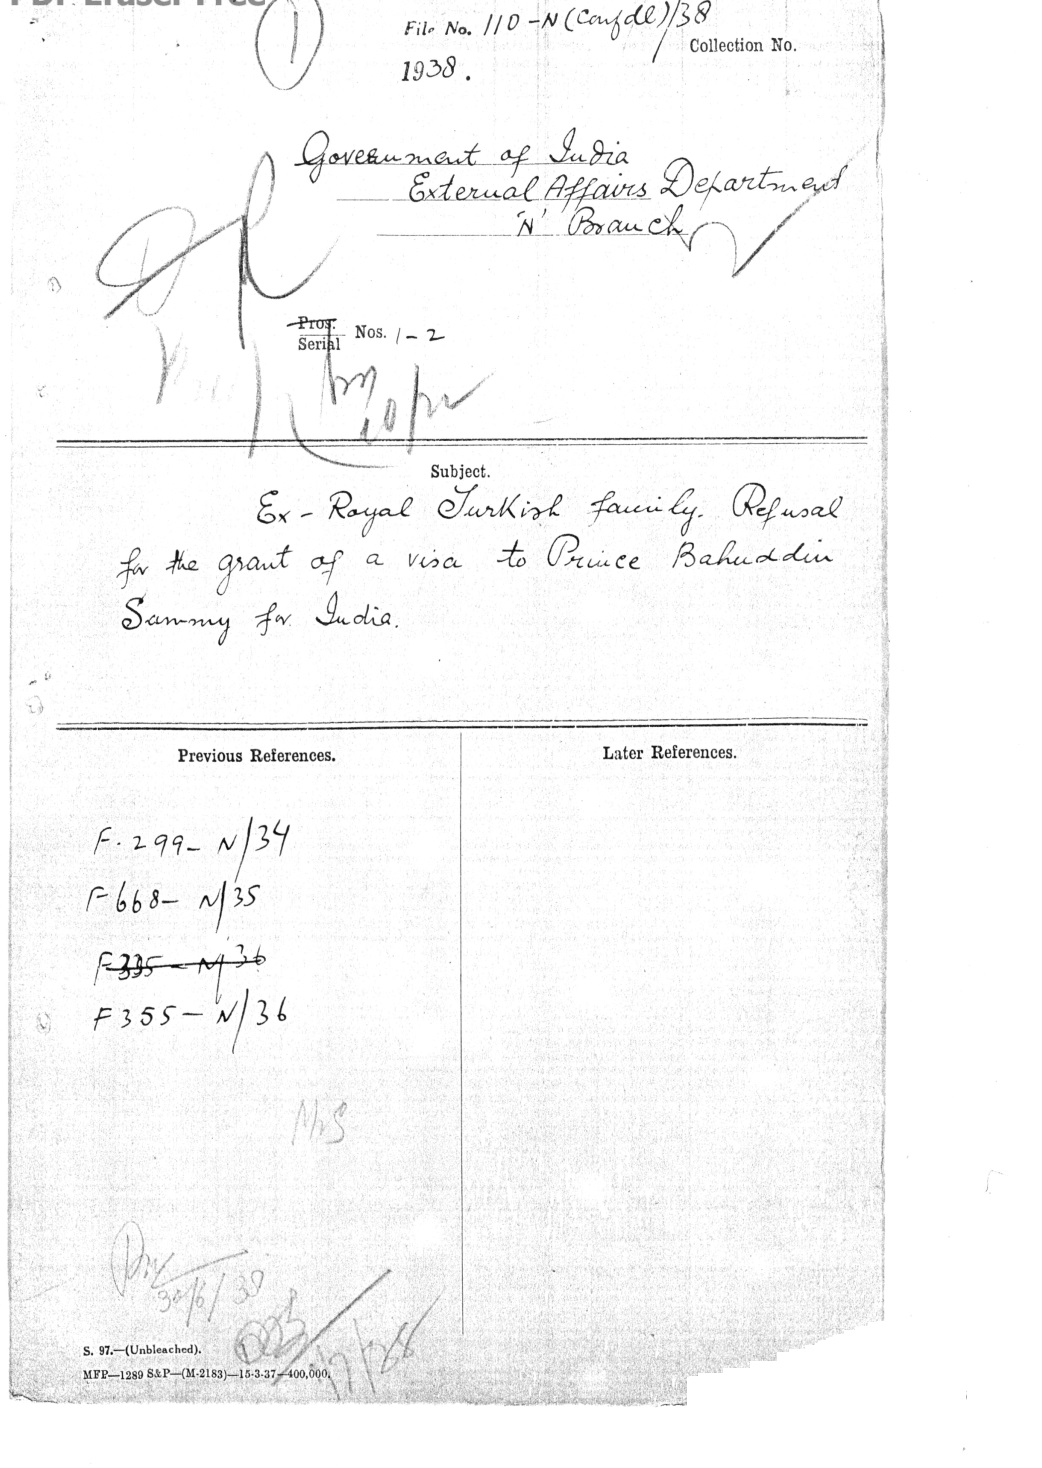 1
File No. 110-N(Confdl)/38
Collection No.
1938.
Government of India
External Affairs Department
'N' Branch
Pros.
Serial Nos. 1-2
Subject.
Ex-Royal Turkish family. Refusal
for the grant of a visa to Prince Bahuddin
Sammy for India.
Previous References.
Later References.
F. 299- N/34
F 668- N/35
F 335- N/36
F 355- N/36
30/6/38
S. 97.—(Unbleached).
MFP—1289 S&P—(M-2183)—15-3-37—400,000.